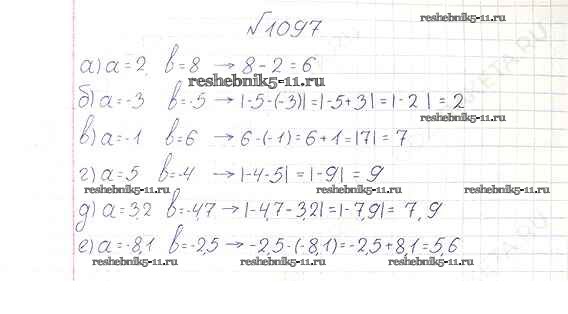 reshebnik5-11.ru
№1097
а) a=2 b=8 → 8-2=6
reshebnik5-11.ru
б) a=-3 b=-5 → |-5-(-3)|=|-5+3|=|-2|=2
reshebnik5-11.ru
в) a=-1 b=6 → 6-(-1)=6+1=|7|=7
г) a=5 b=-4 → |-4-5|=|-9|=9
reshebnik5-11.ru reshebnik5-11.ru reshebnik5-11.ru
д) a=3,2 b=-4,7 → |-4,7-3,2|=|-7,9|=7,9
е) a=-8,1 b=-2,5 → -2,5-(-8,1)=-2,5+8,1=5,6
reshebnik5-11.ru reshebnik5-11.ru reshebnik5-11.ru